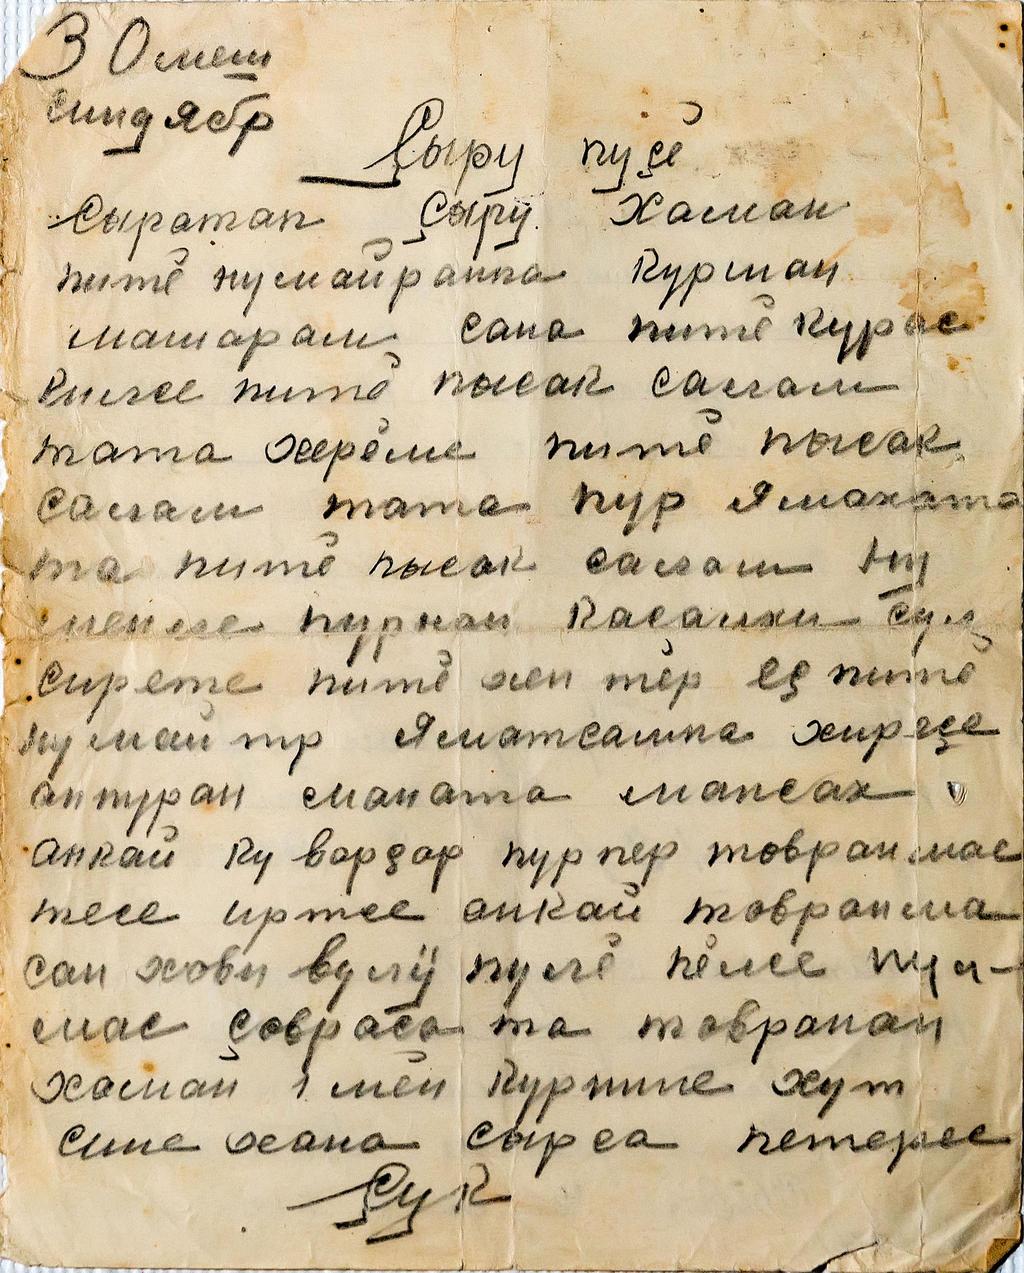 30 меш
синдябр
Ҫыру пуҫӗ
Сыратап Ҫыру Хаман
питӗ нумайранпа Курман
машарам сана питӗ курас
килсе питӗ пысак салам
тата хӗрӗме питӗ пысак
салам тата пур Ямахата
та питӗ пысак салам Ну
менле пурнан касалхи сул
сирете питӗ хен тӗр еҫ питӗ
нумай тр Яматсампа хирҫе
антуран маната мансах
анкай ку вордор пурпер товранмас
тесе иртсе анкай товранма
сан хови вулӳ пулӗ пӗлсе пул-
мас ҫовраса та товранан
хаман 1 мӗн курнине хут
сине хана сырса петерес
Ҫук